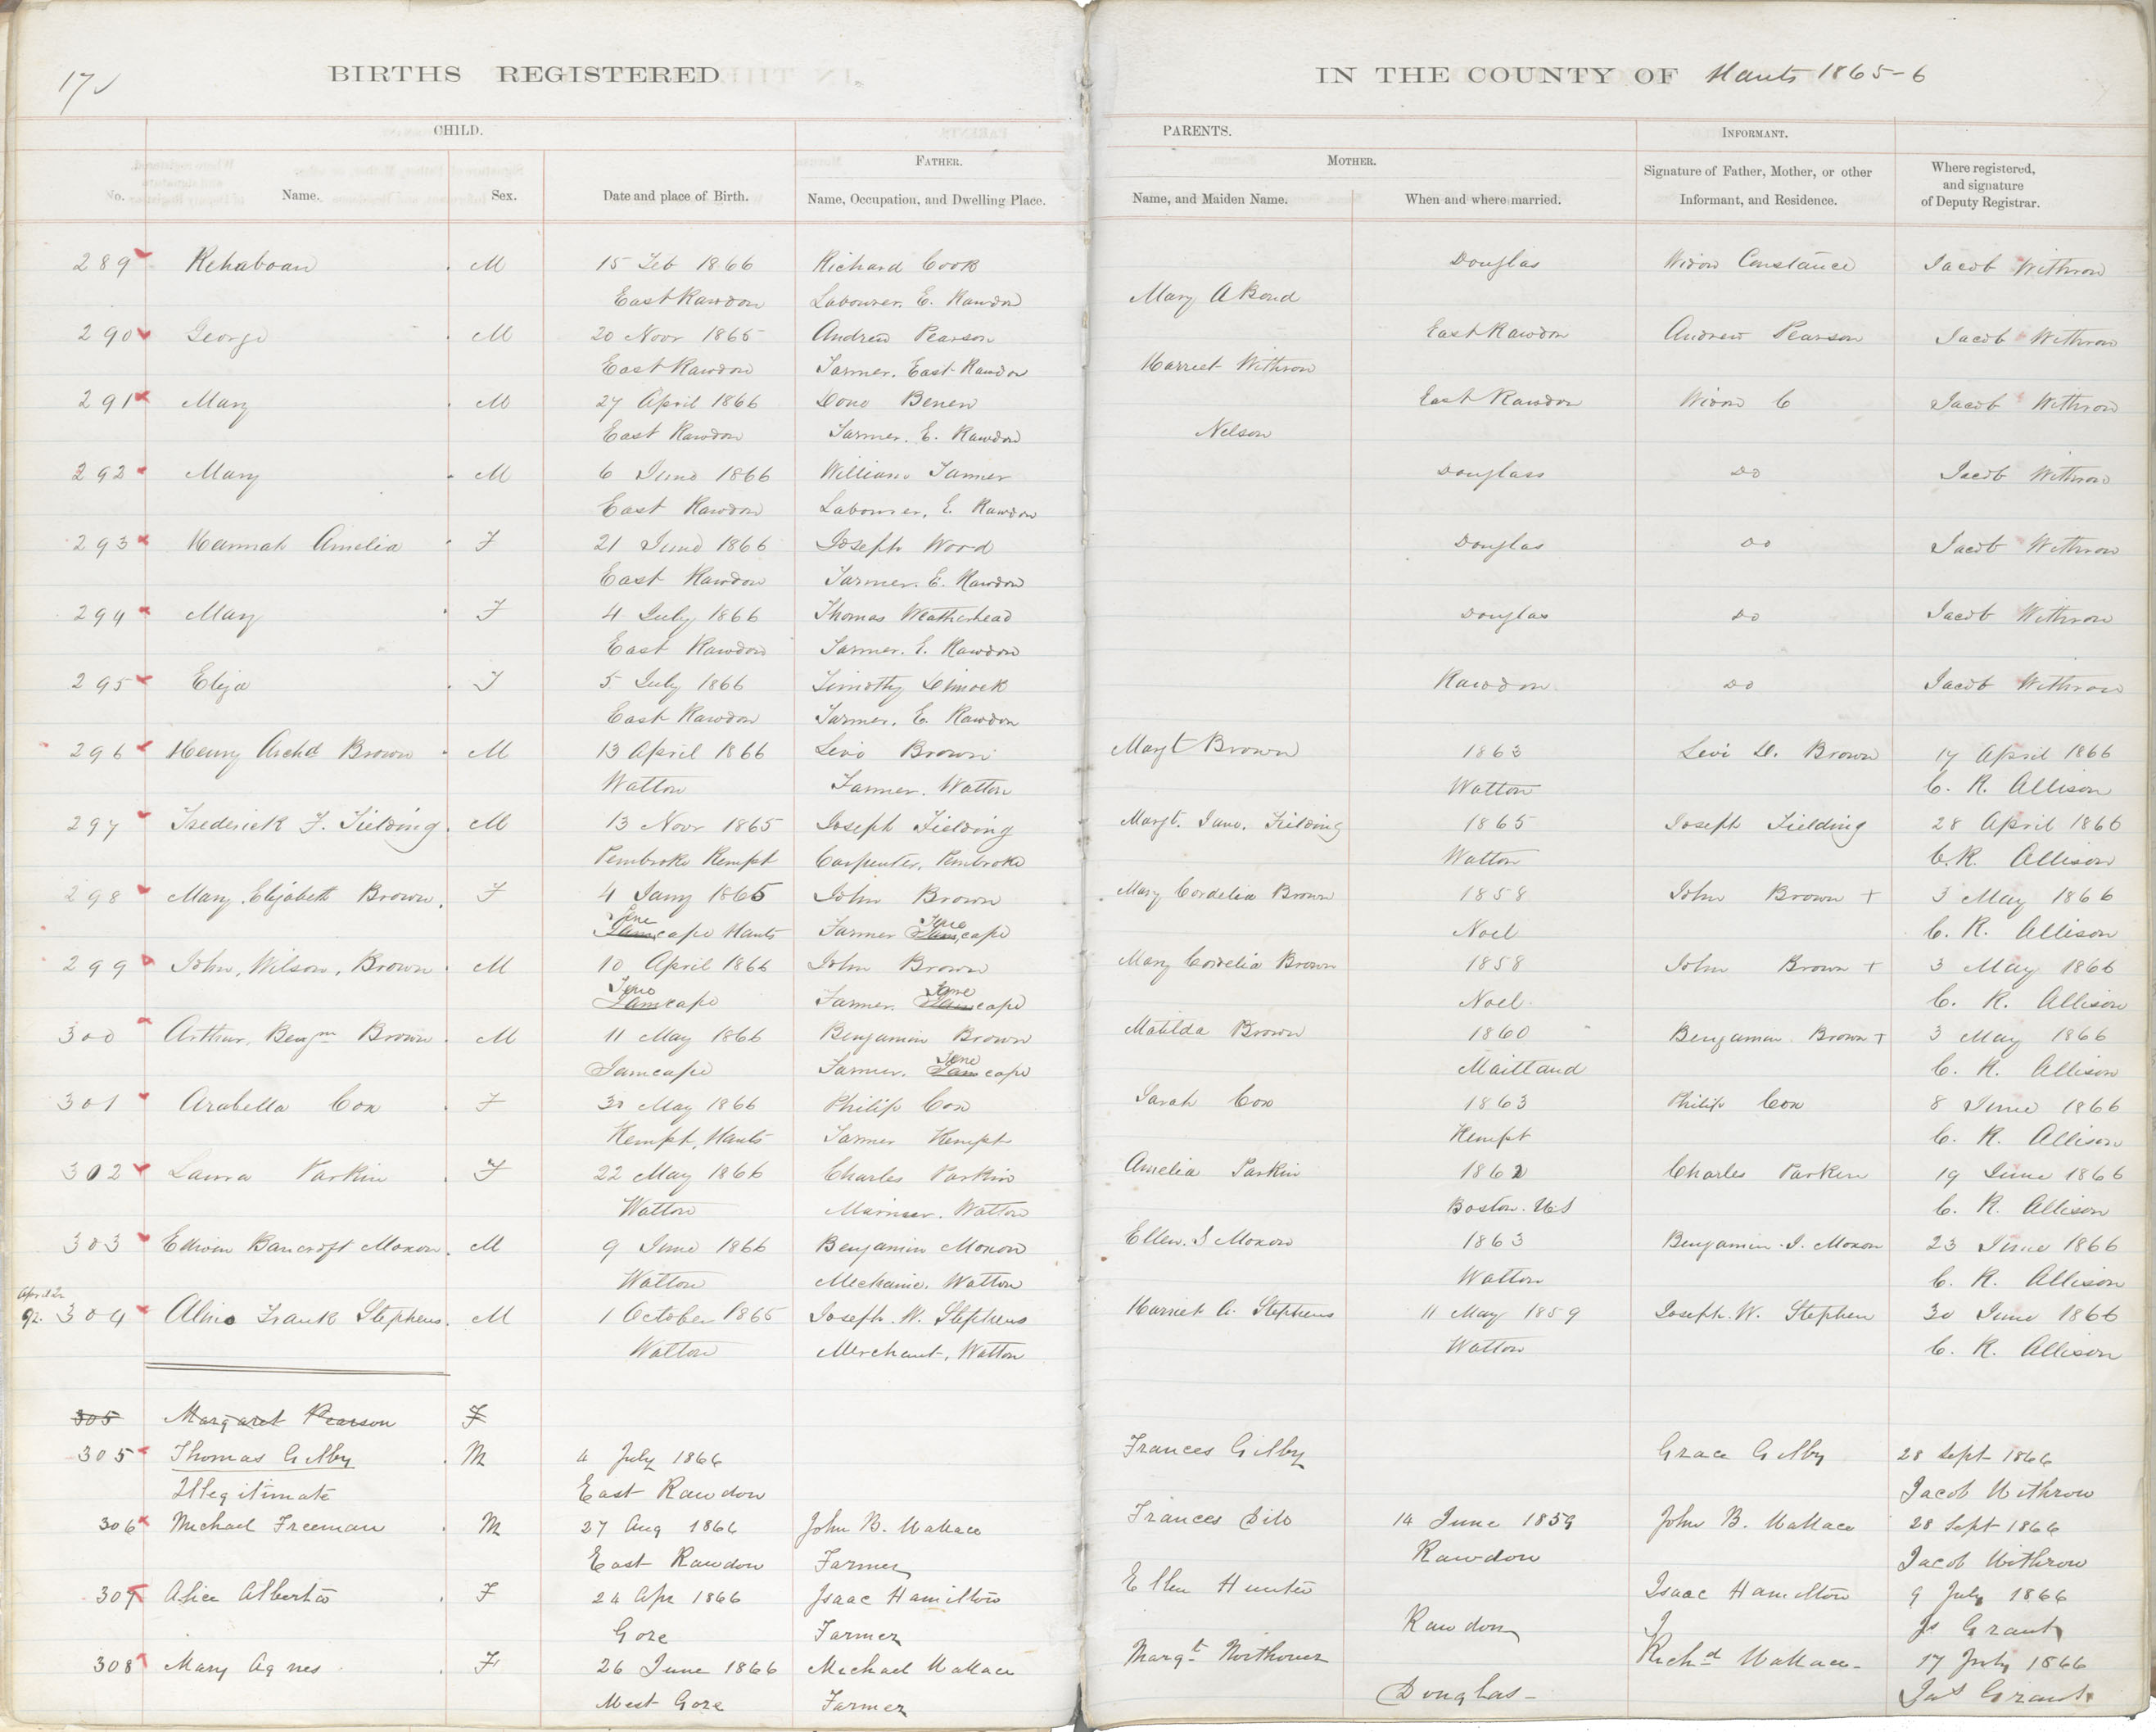 17
BIRTHS REGISTERED IN THE COUNTY OF Hants 1865-6
CHILD. PARENTS. INFORMANT.
FATHER. MOTHER.
No. Name. Sex. Date and place of Birth. Name, Occupation, and Dwelling Place. Name, and Maiden Name. When and where married. Signature of Father, Mother, or other Informant, and Residence. Where registered, and signature of Deputy Registrar.
289 Rehaboan M 15 Feb 1866 Richard Cook Douglas Widow Constance Jacob Withrow
East Rawdon Labourer. E. Rawdon Mary A Bond
290 George M 20 Novr 1865 Andrew Pearson East Rawdon Andrew Pearson Jacob Withrow
East Rawdon Farmer. East Rawdon Harriet Withrow
291 Mary M 27 April 1866 Benen East Rawdon Widow C Jacob Withrow
East Rawdon Farmer. E. Rawdon Nelson
292 Mary M 6 June 1866 William Douglass Do Jacob Withrow
East Rawdon Labourer, E. Rawdon
293 Hannah Amelia F 21 June 1866 Joseph Wood Douglas Do Jacob Withrow
East Rawdon Farmer. E. Rawdon
294 Mary F 4 July 1866 Thomas Weatherhead Douglas Do Jacob Withrow
East Rawdon Farmer. E. Rawdon
295 Eliza F 5 July 1866 Timothy Dimock Rawdon Do Jacob Withrow
East Rawdon Farmer, E. Rawdon
296 Henry Archd Brown M 13 April 1866 Levi Brown Margt Brown 1863 Levi D. Brown 17 April 1866
Walton Farmer. Walton Walton C. R. Allison
297 Frederick F. Fielding M 13 Novr 1865 Joseph Fielding Margt. Jane. Fielding 1865 Joseph Fielding 28 April 1866
Pembroke Kempt Carpenter, Pembroke Walton C. R. Allison
298 Mary. Elizabeth Brown. F 4 Jany 1865 John Brown Mary Cordelia Brown 1858 John Brown + 3 May 1866
Tenecape Hants Farmer Tenecape Noel C. R. Allison
299 John, Wilson, Brown M 10 April 1866 John Brown Mary Cordelia Brown 1858 John Brown + 3 May 1866
Tenecape Farmer. Tenecape Noel. C. R. Allison
300 Arthur, Benjm Brown M 11 May 1866 Benjamin Brown Matilda Brown 1860 Benjamin Brown + 3 May 1866
Tamcape Farmer. Tenecape Maitland C. R. Allison
301 Arabella Cox F 30 May 1866 Philip Cox Sarah Cox 1863 Philip Cox 8 June 1866
Kempt, Hants Farmer Kempt Kempt C. R. Allison
302 Laura Parkin F 22 May 1866 Charles Parkin Amelia Parkin 1862 Charles Parkin 19 June 1866
Walton Mariner. Walton Boston. US C. R. Allison
303 Edwin Bancroft Moxon M 9 June 1866 Benjamin Moxon Ellen. S Moxon 1863 Benjamin. I. Moxon 23 June 1866
Walton Mechanic, Walton Walton C. R. Allison
304 Frank Stephens M 1 October 1865 Joseph. W. Stephens Harriet A. Stephens 11 May 1859 Joseph. W. Stephen 30 June 1866
Walton Merchant, Walton Walton C. R. Allison
305 Margaret Pearson F
305 Thomas Gilby M 4 July 1866 Frances Gilby Grace Gilby 28 Sept 1866
Illegitimate East Rawdon Jacob Withrow
306 Michael Freeman M 27 Aug 1866 John B. Wallace Frances 14 June 1859 John B. Wallace 28 Sept 1866
East Rawdon Farmer Rawdon Jacob Withrow
307 Alice Alberta F 24 Apr 1866 Isaac Hamilton Ellen Hunter Isaac Hamilton 9 July 1866
Gore Farmer Rawdon Js Grant
308 Mary Agnes F 26 June 1866 Michael Wallace Margt Northover Richd Wallace 17 July 1866
West Gore Farmer Douglas Jas Grant